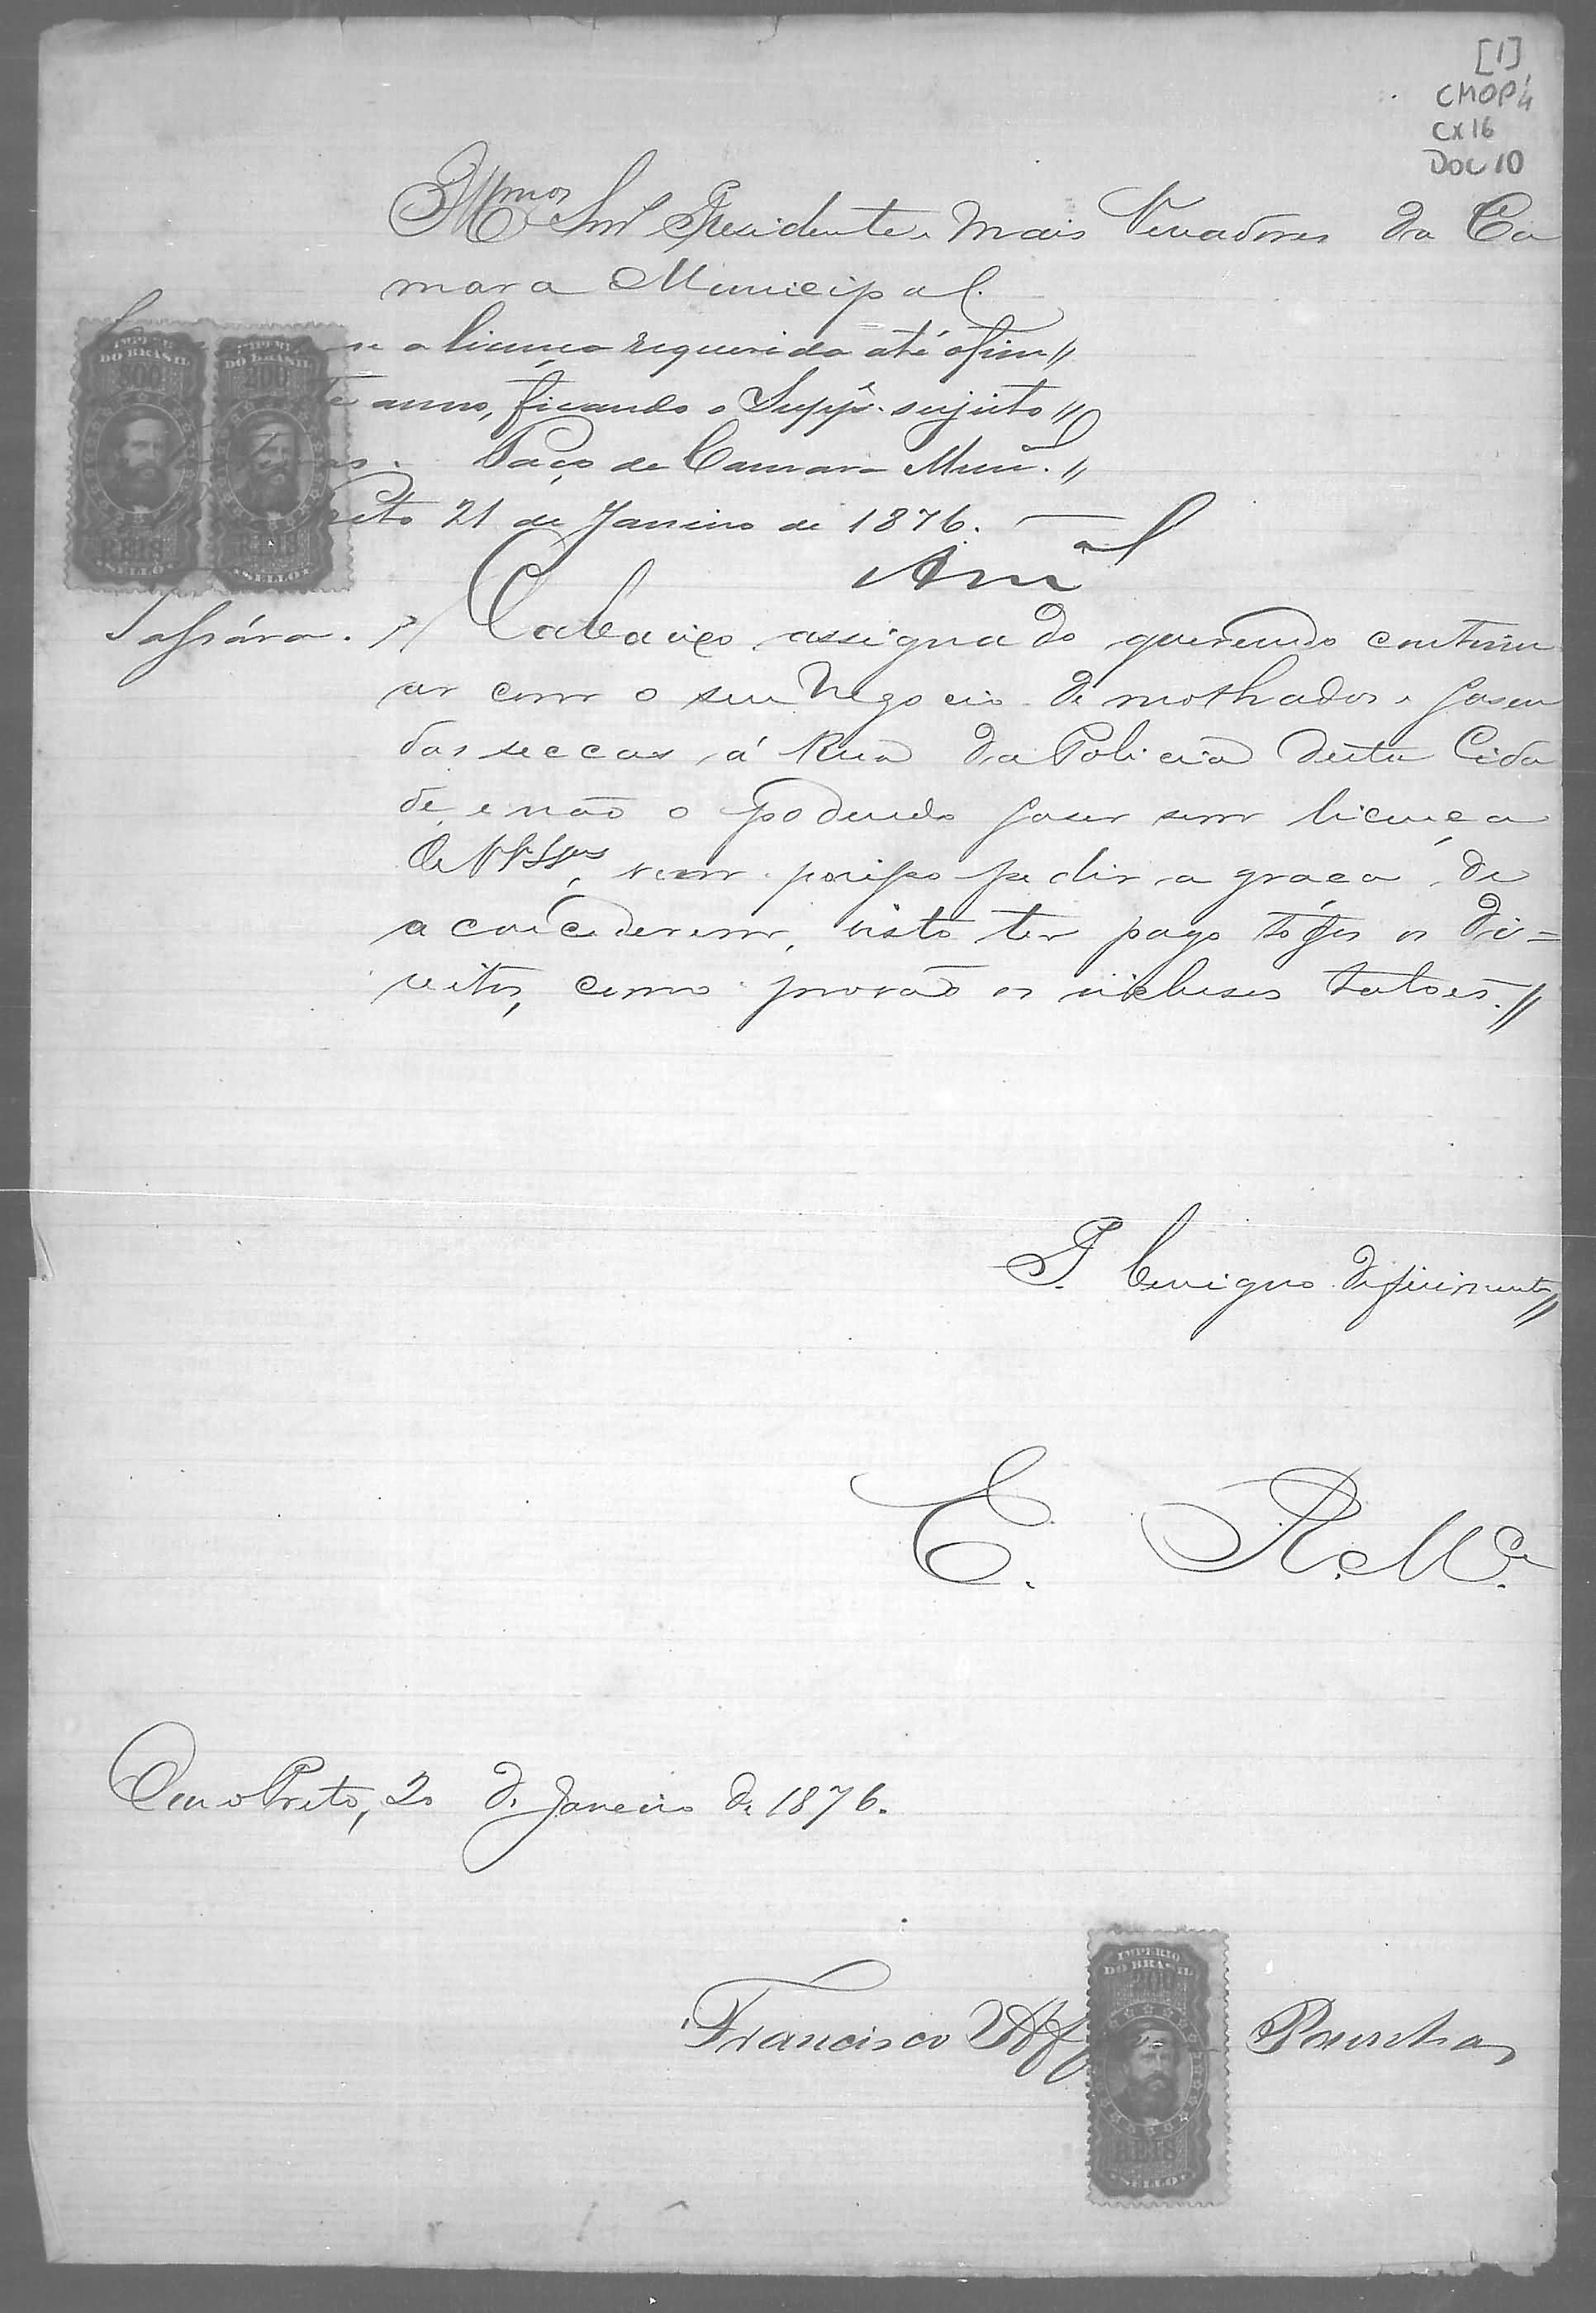 [1]
CMOP 4
CX 16
DOC 10
Illmos Snr Presidente e mais Vereadores da Ca
mara Municipal.
se a licença requerida até o fim //
te anno, ficando o Suppe. sujeito //
as. Paço da Camara Munal. //
Preto 21 de Janeiro de 1876.
IMPERIO DO BRASIL
200
REIS
SELLO
IMPERIO DO BRASIL
200
REIS
SELLO
O abaixo assignado querendo continu
ar com o seu Negocio de molhados e fasen
das seccas á Rua da Policia desta Cida
de, e não o podendo faser sem licença
de VVSSas, vem por isso pedir a graça de
a concederem, visto ter pago todos os di=
reitos, como provão os inclusos talões. //
P. benigno deferimento //
E. R. Mce.
Ouro Preto, 20 de Janeiro de 1876.
IMPERIO DO BRASIL
200
REIS
SELLO
Francisco Aff